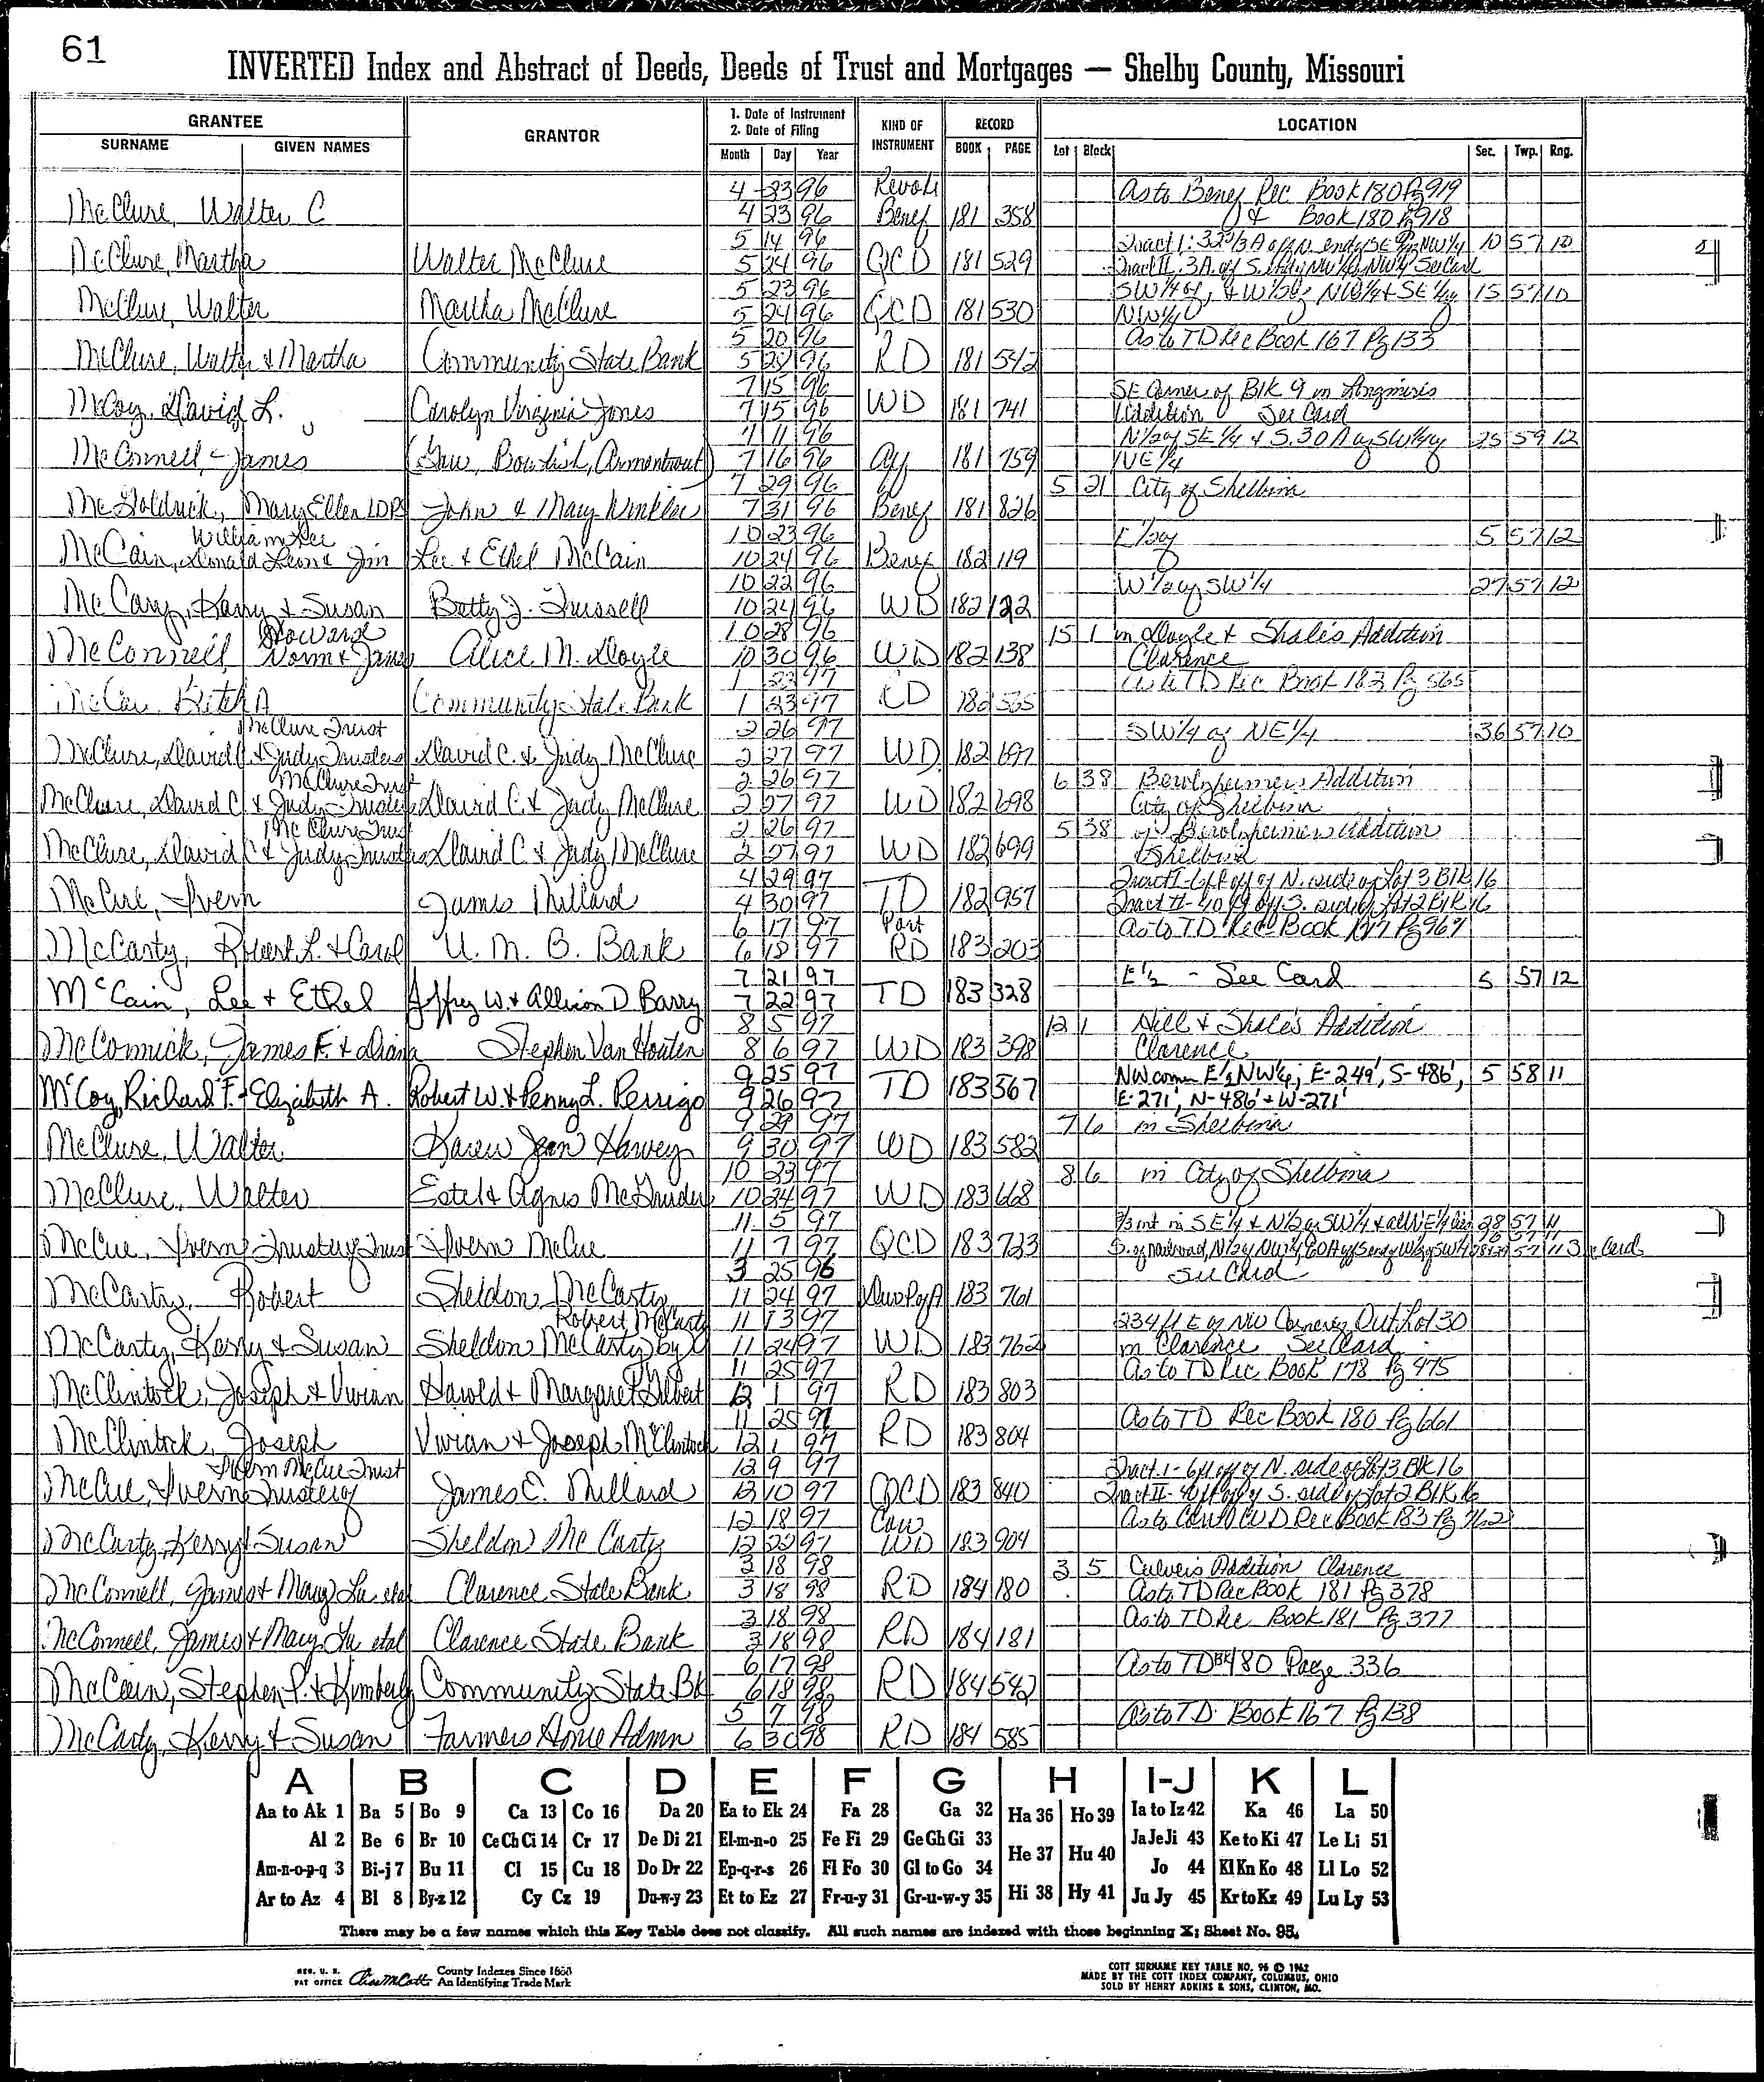 61
INVERTED Index and Abstract of Deeds, Deeds of Trust and Mortgages — Shelby County, Missouri
GRANTEE
SURNAME GIVEN NAMES GRANTOR 1. Date of Instrument 2. Date of Filing Month Day Year KIND OF INSTRUMENT RECORD BOOK PAGE LOCATION Lot Block Sec. Twp. Rng.
4 23 96 Revok As to Benef Rec Book 180 Pg 919
McClure, Walter C 4 23 96 Benef 181 358 & Book 180 Pg 918
5 14 96 Tract I: 32 2/3 A off N. end of SE 1/4 of NW 1/4 10 57 10
McClure, Martha Walter McClure 5 24 96 QCD 181 529 Tract II. 3A. off S. end of NW 1/4 of NW 1/4 See Card
5 23 96 SW 1/4 of, & W 1/2 of NW 1/4 & SE 1/4 of 15 57 10
McClure, Walter Martha McClure 5 24 96 QCD 181 530 NW 1/4
5 20 96 As to TD Rec Book 167 Pg 133
McClure, Walter & Martha Community State Bank 5 28 96 RD 181 542
7 15 96 SE Corner of Blk 9 in Longmires
McCoy, David L. Carolyn Virginia Jones 7 15 96 WD 181 741 Addition See Card
7 11 96 N 1/2 of SE 1/4 & S. 30 A of SW 1/4 of 25 59 12
McConnell, James (Gaw, Bowdish, Armontrout) 7 16 96 Aff 181 759 NE 1/4
7 29 96 5 21 City of Shelbina
McGoldrick, Mary Ellen LDPS John & Mary Winkler 7 31 96 Benef 181 826
William Lee 10 23 96 E 1/2 of 5 57 12
McCain, Donald Leon & Jim Lee & Ethel McCain 10 24 96 Benef 182 119
10 22 96 W 1/2 of SW 1/4 27 57 12
McCary, Harry & Susan Betty J. Trussell 10 24 96 WD 182 122
Howard 10 28 96 15 1 in Doyle & Shale's Addition
McConnell, Norm & James Alice M. Doyle 10 30 96 WD 182 138 Clarence
1 23 97 As to TD Rec Book 182 Pg 565
Community State Bank 1 23 97 RD 182 565
McClure Trust 2 26 97 SW 1/4 of NE 1/4 36 57 10
McClure, David C & Judy Trustees David C. & Judy McClure 2 27 97 WD 182 697
McClure Trust 2 26 97 6 38 Berolzheimers Addition
McClure, David C & Judy Trustees David C. & Judy McClure 2 27 97 WD 182 698 City of Shelbina
McClure Trust 2 26 97 5 38 of Berolzheimers Addition
McClure, David C & Judy Trustees David C & Judy McClure 2 27 97 WD 182 699 Shelbina
4 29 97 Tract I - 6 ft off of N. side of Lot 3 Blk 16
McCue, Ivern James Millard 4 30 97 TD 182 957 Tract II - 40 ft off S. side of Lot 2 Blk 16
6 17 97 Part As to TD Rec Book 177 Pg 967
McCarty, Robert L. & Carol U. M. B. Bank 6 18 97 RD 183 203
7 21 97 E 1/2 - See Card 5 57 12
McCain, Lee & Ethel Jeffrey W. & Allison D Barry 7 22 97 TD 183 328
8 5 97 12 1 Hill & Shale's Addition
McCormick, James F. & Diana Stephen Van Houten 8 6 97 WD 183 398 Clarence
9 25 97 NW corn E 1/2 NW 1/4; E-249', S-486', 5 58 11
McCoy, Richard F. & Elizabeth A. Robert W. & Penny L. Perrigo 9 26 97 TD 183 567 E-271', N-486' & W-271'
9 29 97 7 6 in Shelbina
McClure, Walter Karen Jean Harvey 9 30 97 WD 183 582
10 23 97 8 6 in City of Shelbina
McClure, Walter Estel & Agnes McGruder 10 24 97 WD 183 668
11 5 97 2/3 int in SE 1/4 & N 1/2 of SW 1/4 & all NE 1/4 28 57 11
McCue, Ivern Trustee of Trust Ivern McCue 11 7 97 QCD 183 723 S. of railroad, N 1/2 of NW 1/4, 60A off S end of W 1/2 of SW 1/4
3 25 96 See Card
McCarty, Robert Sheldon McCarty 11 24 97 Dur P of A 183 761
Robert McCarty 11 13 97 234 ft E of NW Corner of Out Lot 30
McCarty, Kerry & Susan Sheldon McCarty by 11 24 97 WD 183 762 in Clarence See Card
11 25 97 As to TD Rec Book 178 Pg 475
McClintock, Joseph & Vivian Harold & Margaret Gilbert 12 1 97 RD 183 803
11 25 97 As to TD Rec Book 180 Pg 661
McClintock, Joseph Vivian & Joseph McClintock 12 1 97 RD 183 804
Ivern McCue Trust 12 9 97 Tract I - 6 ft off of N. side of Lot 3 Blk 16
McCue, Ivern Trustee of James E. Millard 12 10 97 QCD 183 840 Tract II - 40 ft off of S. side of Lot 2 Blk 16
12 18 97 Corr As to Corr WD Rec Book 183 Pg 762
McCarty, Kerry & Susan Sheldon McCarty 12 22 97 WD 183 904
3 18 98 3 5 Culver's Addition Clarence
McConnell, James & Mary Lu etal Clarence State Bank 3 18 98 RD 184 180 As to TD Rec Book 181 Pg 378
3 18 98 As to TD Rec Book 181 Pg 377
McConnell, James & Mary Lu etal Clarence State Bank 3 18 98 RD 184 181
6 17 98 As to TD Bk 180 Page 336
McCain, Stephen P. & Kimberly Community State Bk 6 18 98 RD 184 542
5 7 98 As to TD Book 167 Pg 138
McCarty, Kerry & Susan Farmers Home Admn 6 30 98 RD 184 585
A B C D E F G H I-J K L
Aa to Ak 1 Ba 5 Bo 9 Ca 13 Co 16 Da 20 Ea to Ek 24 Fa 28 Ga 32 Ha 36 Ho 39 Ia to Iz 42 Ka 46 La 50
Al 2 Be 6 Br 10 Ce Ch Ci 14 Cr 17 De Di 21 El-m-n-o 25 Fe Fi 29 Ge Gh Gi 33 He 37 Hu 40 Ja Je Ji 43 Ke to Ki 47 Le Li 51
Am-n-o-p-q 3 Bi-j 7 Bu 11 Cl 15 Cu 18 Do Dr 22 Ep-q-r-s 26 Fl Fo 30 Gl to Go 34 Jo 44 Kl Kn Ko 48 Ll Lo 52
Ar to Az 4 Bl 8 By-z 12 Cy Cz 19 Du-w-y 23 Et to Ez 27 Fr-u-y 31 Gr-u-w-y 35 Hi 38 Hy 41 Ju Jy 45 Kr to Kz 49 Lu Ly 53
There may be a few names which this Key Table does not classify. All such names are indexed with those beginning X; Sheet No. 95.
REG. U. S. PAT OFFICE County Indexes Since 1888 An Identifying Trade Mark
COTT SURNAME KEY TABLE NO. 96 © 1962
MADE BY THE COTT INDEX COMPANY, COLUMBUS, OHIO
SOLD BY HENRY ADKINS & SONS, CLINTON, MO.